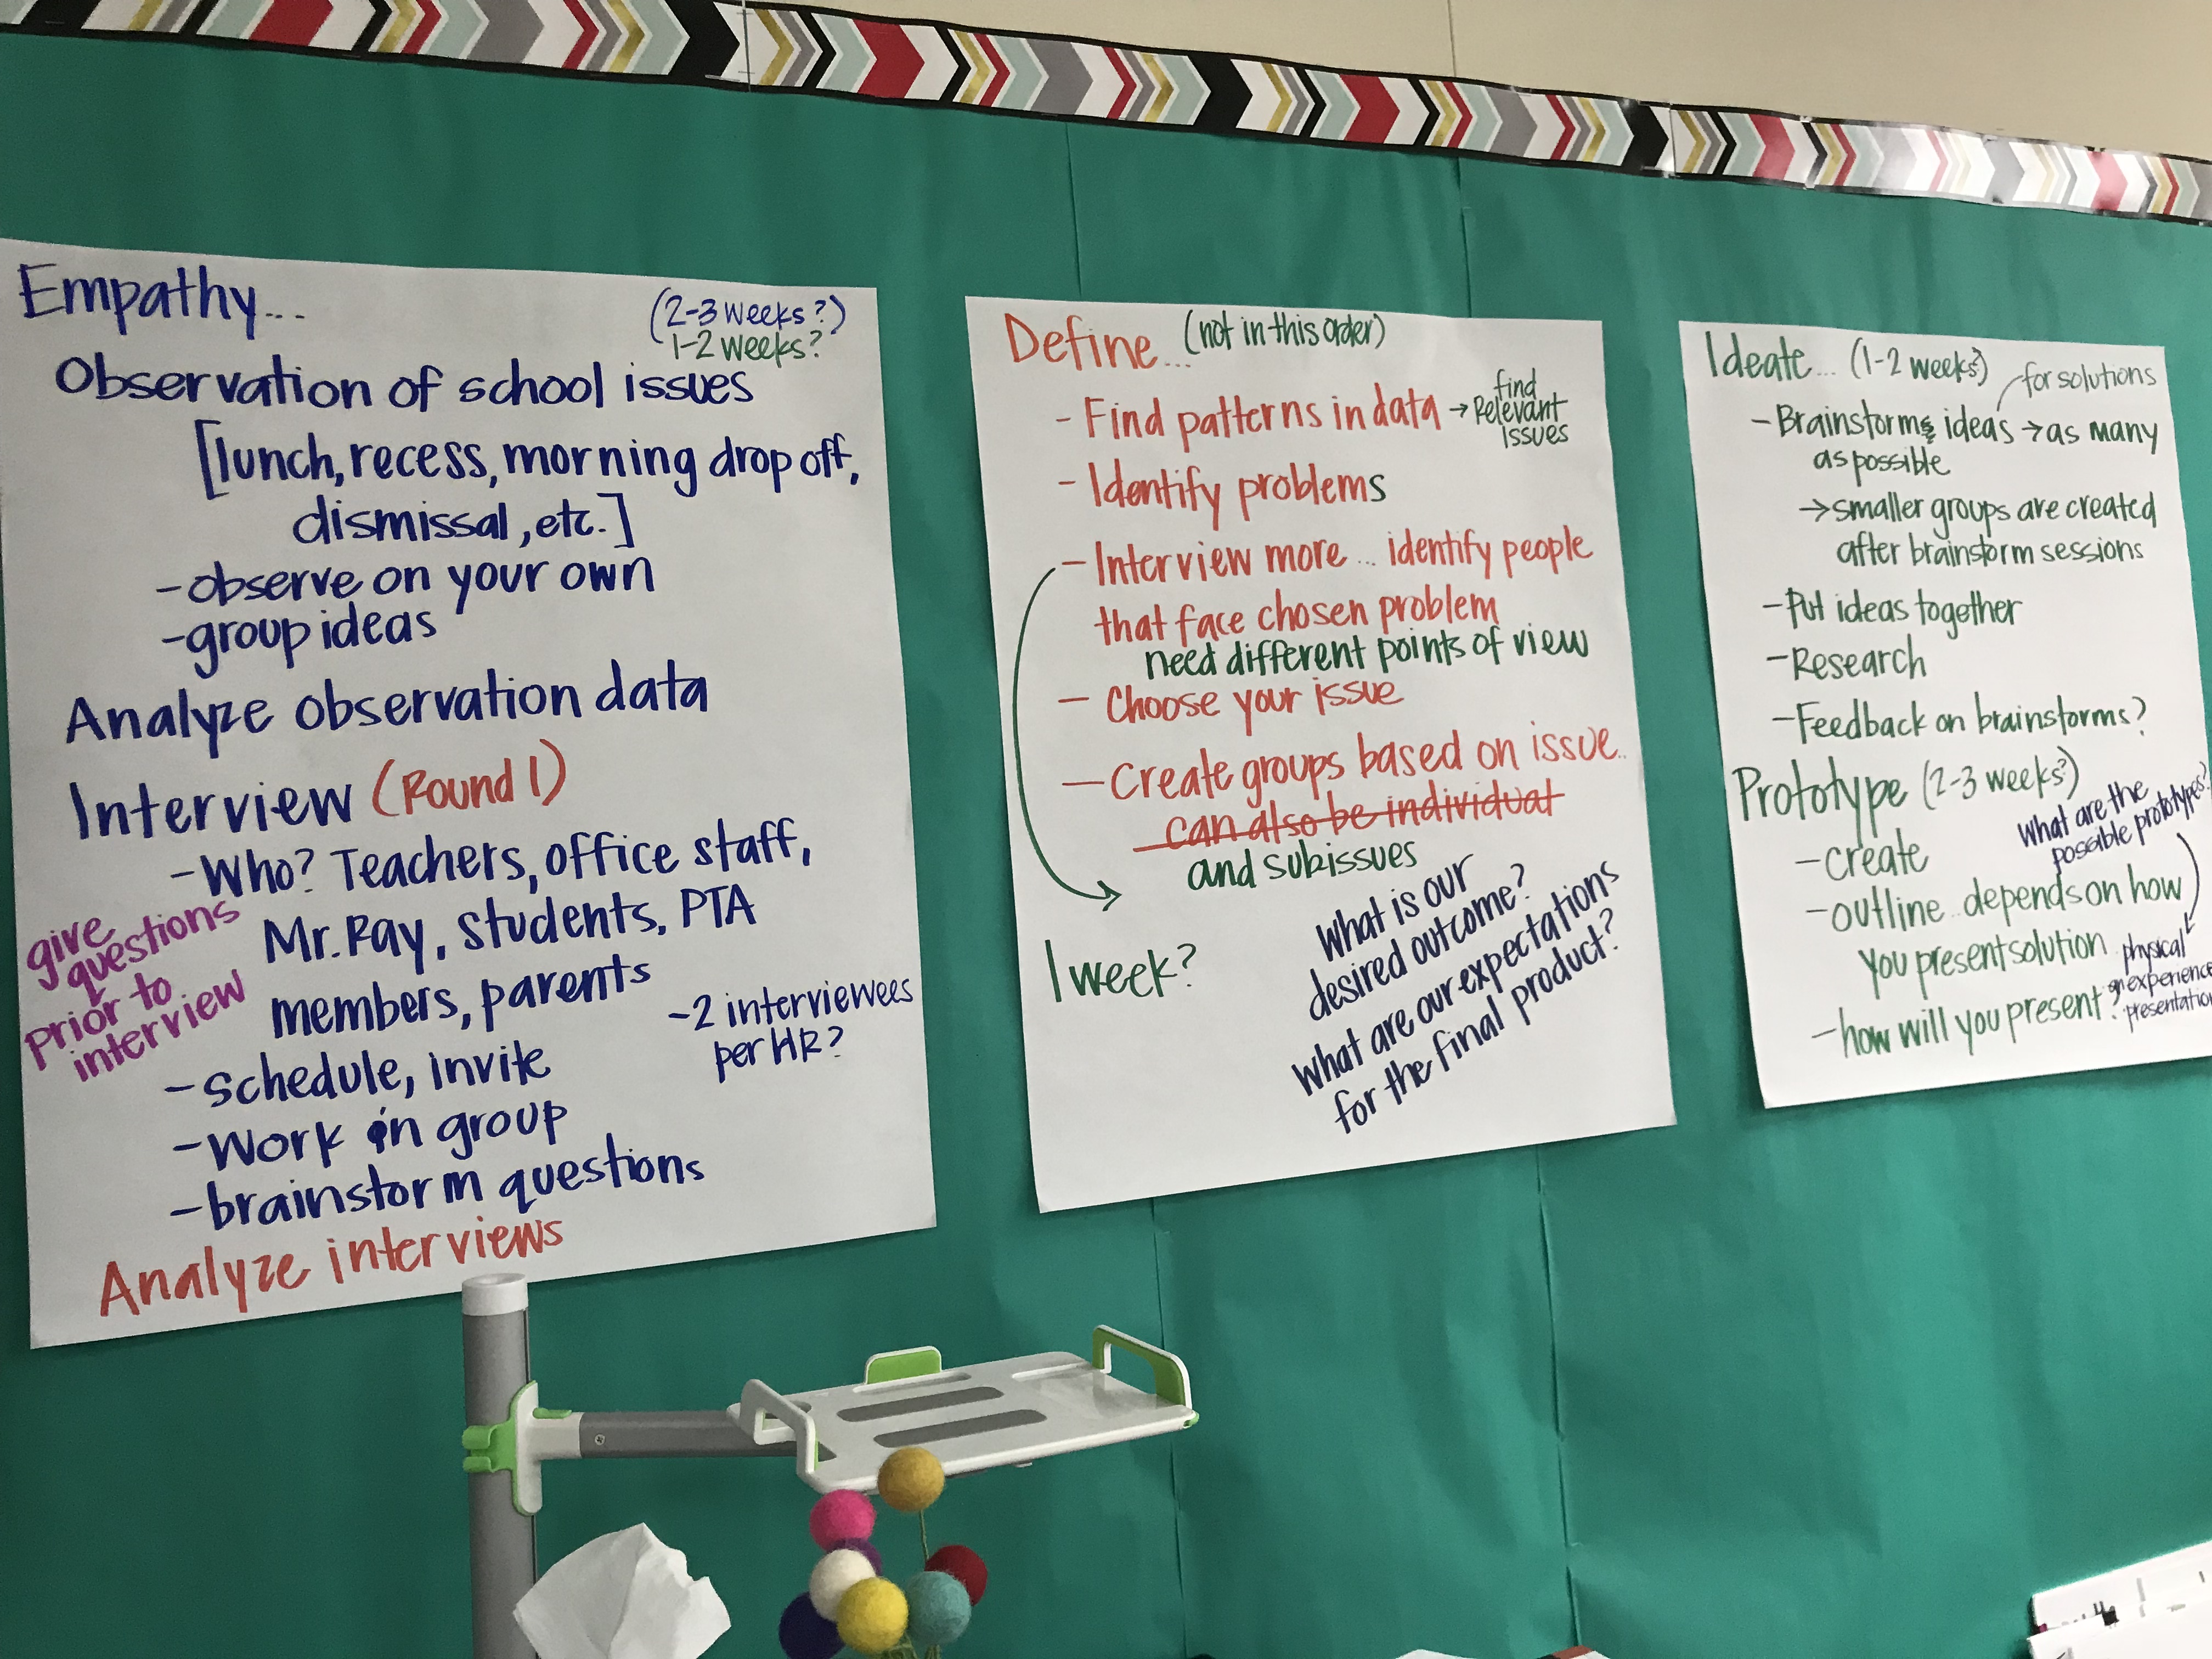 Empathy...
(2-3 weeks?)
1-2 weeks?
Observation of school issues
[lunch, recess, morning drop off,
dismissal, etc.]
-observe on your own
-group ideas
Analyze observation data
Interview (Round 1)
-Who? Teachers, office staff,
Mr. Ray, students, PTA
members, parents
give
questions
prior to
interview
-2 interviewees
per HR?
-schedule, invite
-Work in group
-brainstorm questions
Analyze interviews
Define... (not in this order)
- Find patterns in data → find
Relevant
issues
- Identify problems
- Interview more... identify people
that face chosen problem
need different points of view
- Choose your issue
- Create groups based on issue..
can also be individual
and subissues
1 week?
What is our
desired outcome?
What are our expectations
for the final product?
Ideate... (1-2 weeks?)
for solutions
-Brainstorms ideas → as many
as possible
→ smaller groups are created
after brainstorm sessions
-Put ideas together
-Research
-Feedback on brainstorms?
Prototype (2-3 weeks?)
What are the
possible prototypes?
-create
-outline..depends on how
you present solution..
physical
experience
presentation
-how will you present?